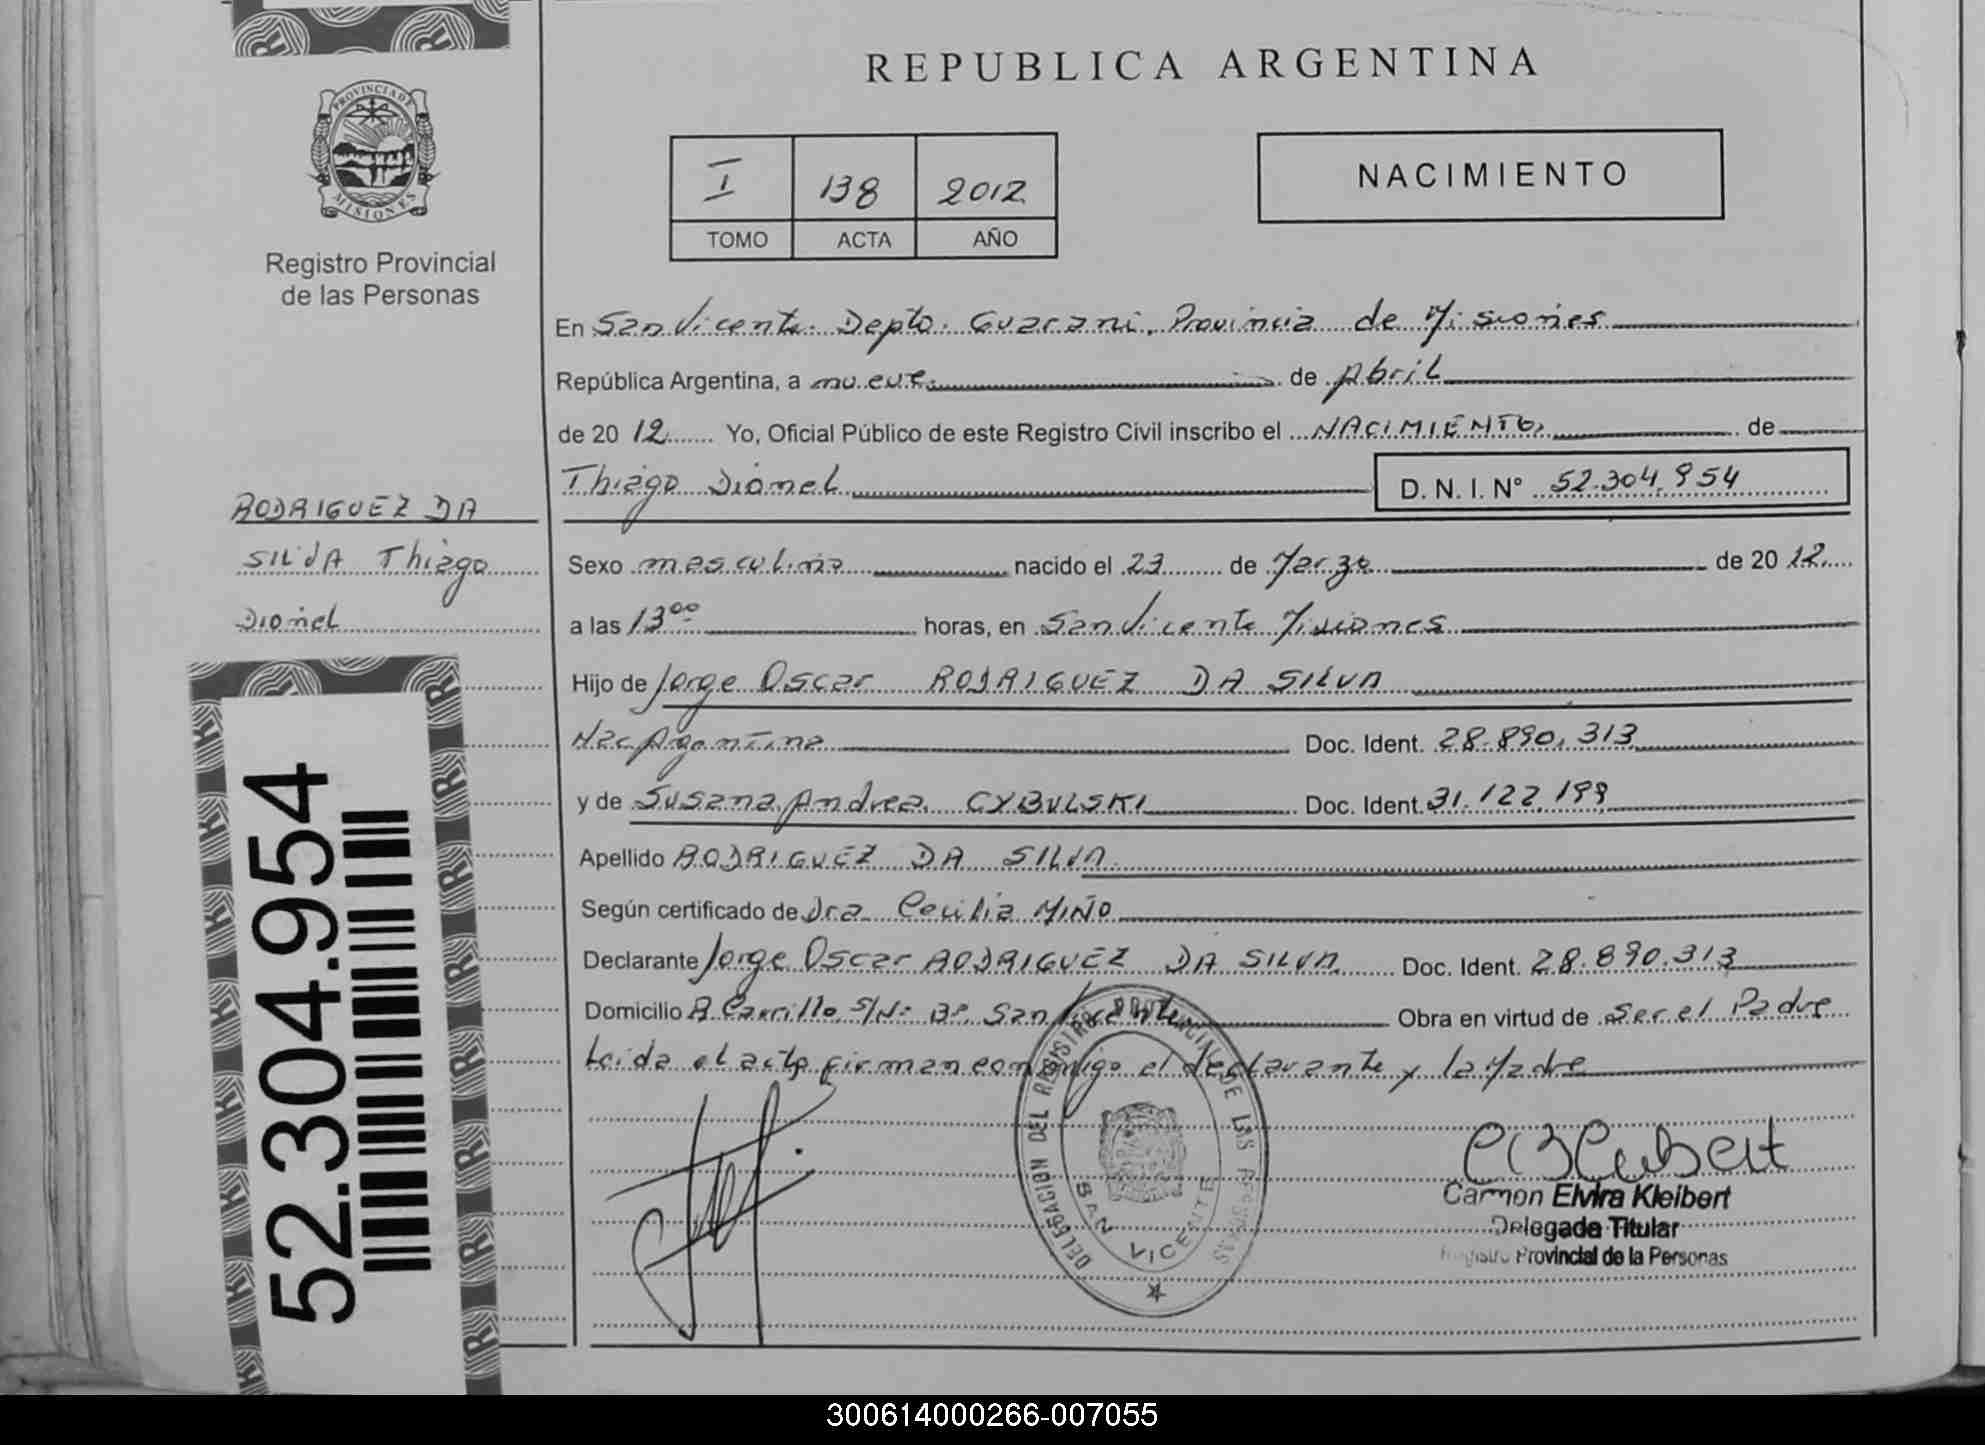 REPUBLICA ARGENTINA
PROVINCIA DE MISIONES
Registro Provincial
de las Personas
I 138 2012
TOMO ACTA AÑO
NACIMIENTO
En San Vicente. Depto. Guarani, Provincia de Misiones
República Argentina, a nueve de Abril
de 2012 Yo, Oficial Público de este Registro Civil inscribo el NACIMIENTO de
Thiago Dionel D. N. I. N° 52.304.954
RODRIGUEZ DA
SILVA Thiago
Dionel
Sexo masculino nacido el 23 de Marzo de 2012
a las 13 00 horas, en San Vicente Misiones
Hijo de Jorge Oscar RODRIGUEZ DA SILVA
Nac Argentina Doc. Ident. 28.890.313
y de Susana Andrea CYBULSKI Doc. Ident. 31.122.199
Apellido RODRIGUEZ DA SILVA
Según certificado de Dra Cecilia MIÑO
Declarante Jorge Oscar RODRIGUEZ DA SILVA Doc. Ident. 28.890.313
Domicilio R Carrillo S/N° B° San Vicente Obra en virtud de ser el Padre
Leida el acta firman conmigo el declarante y la Madre
DELEGACION DEL REGISTRO PROVINCIAL DE LAS PERSONAS
SAN VICENTE
Carmen Elvira Kleibert
Delegada Titular
Registro Provincial de la Personas
52.304.954
300614000266-007055